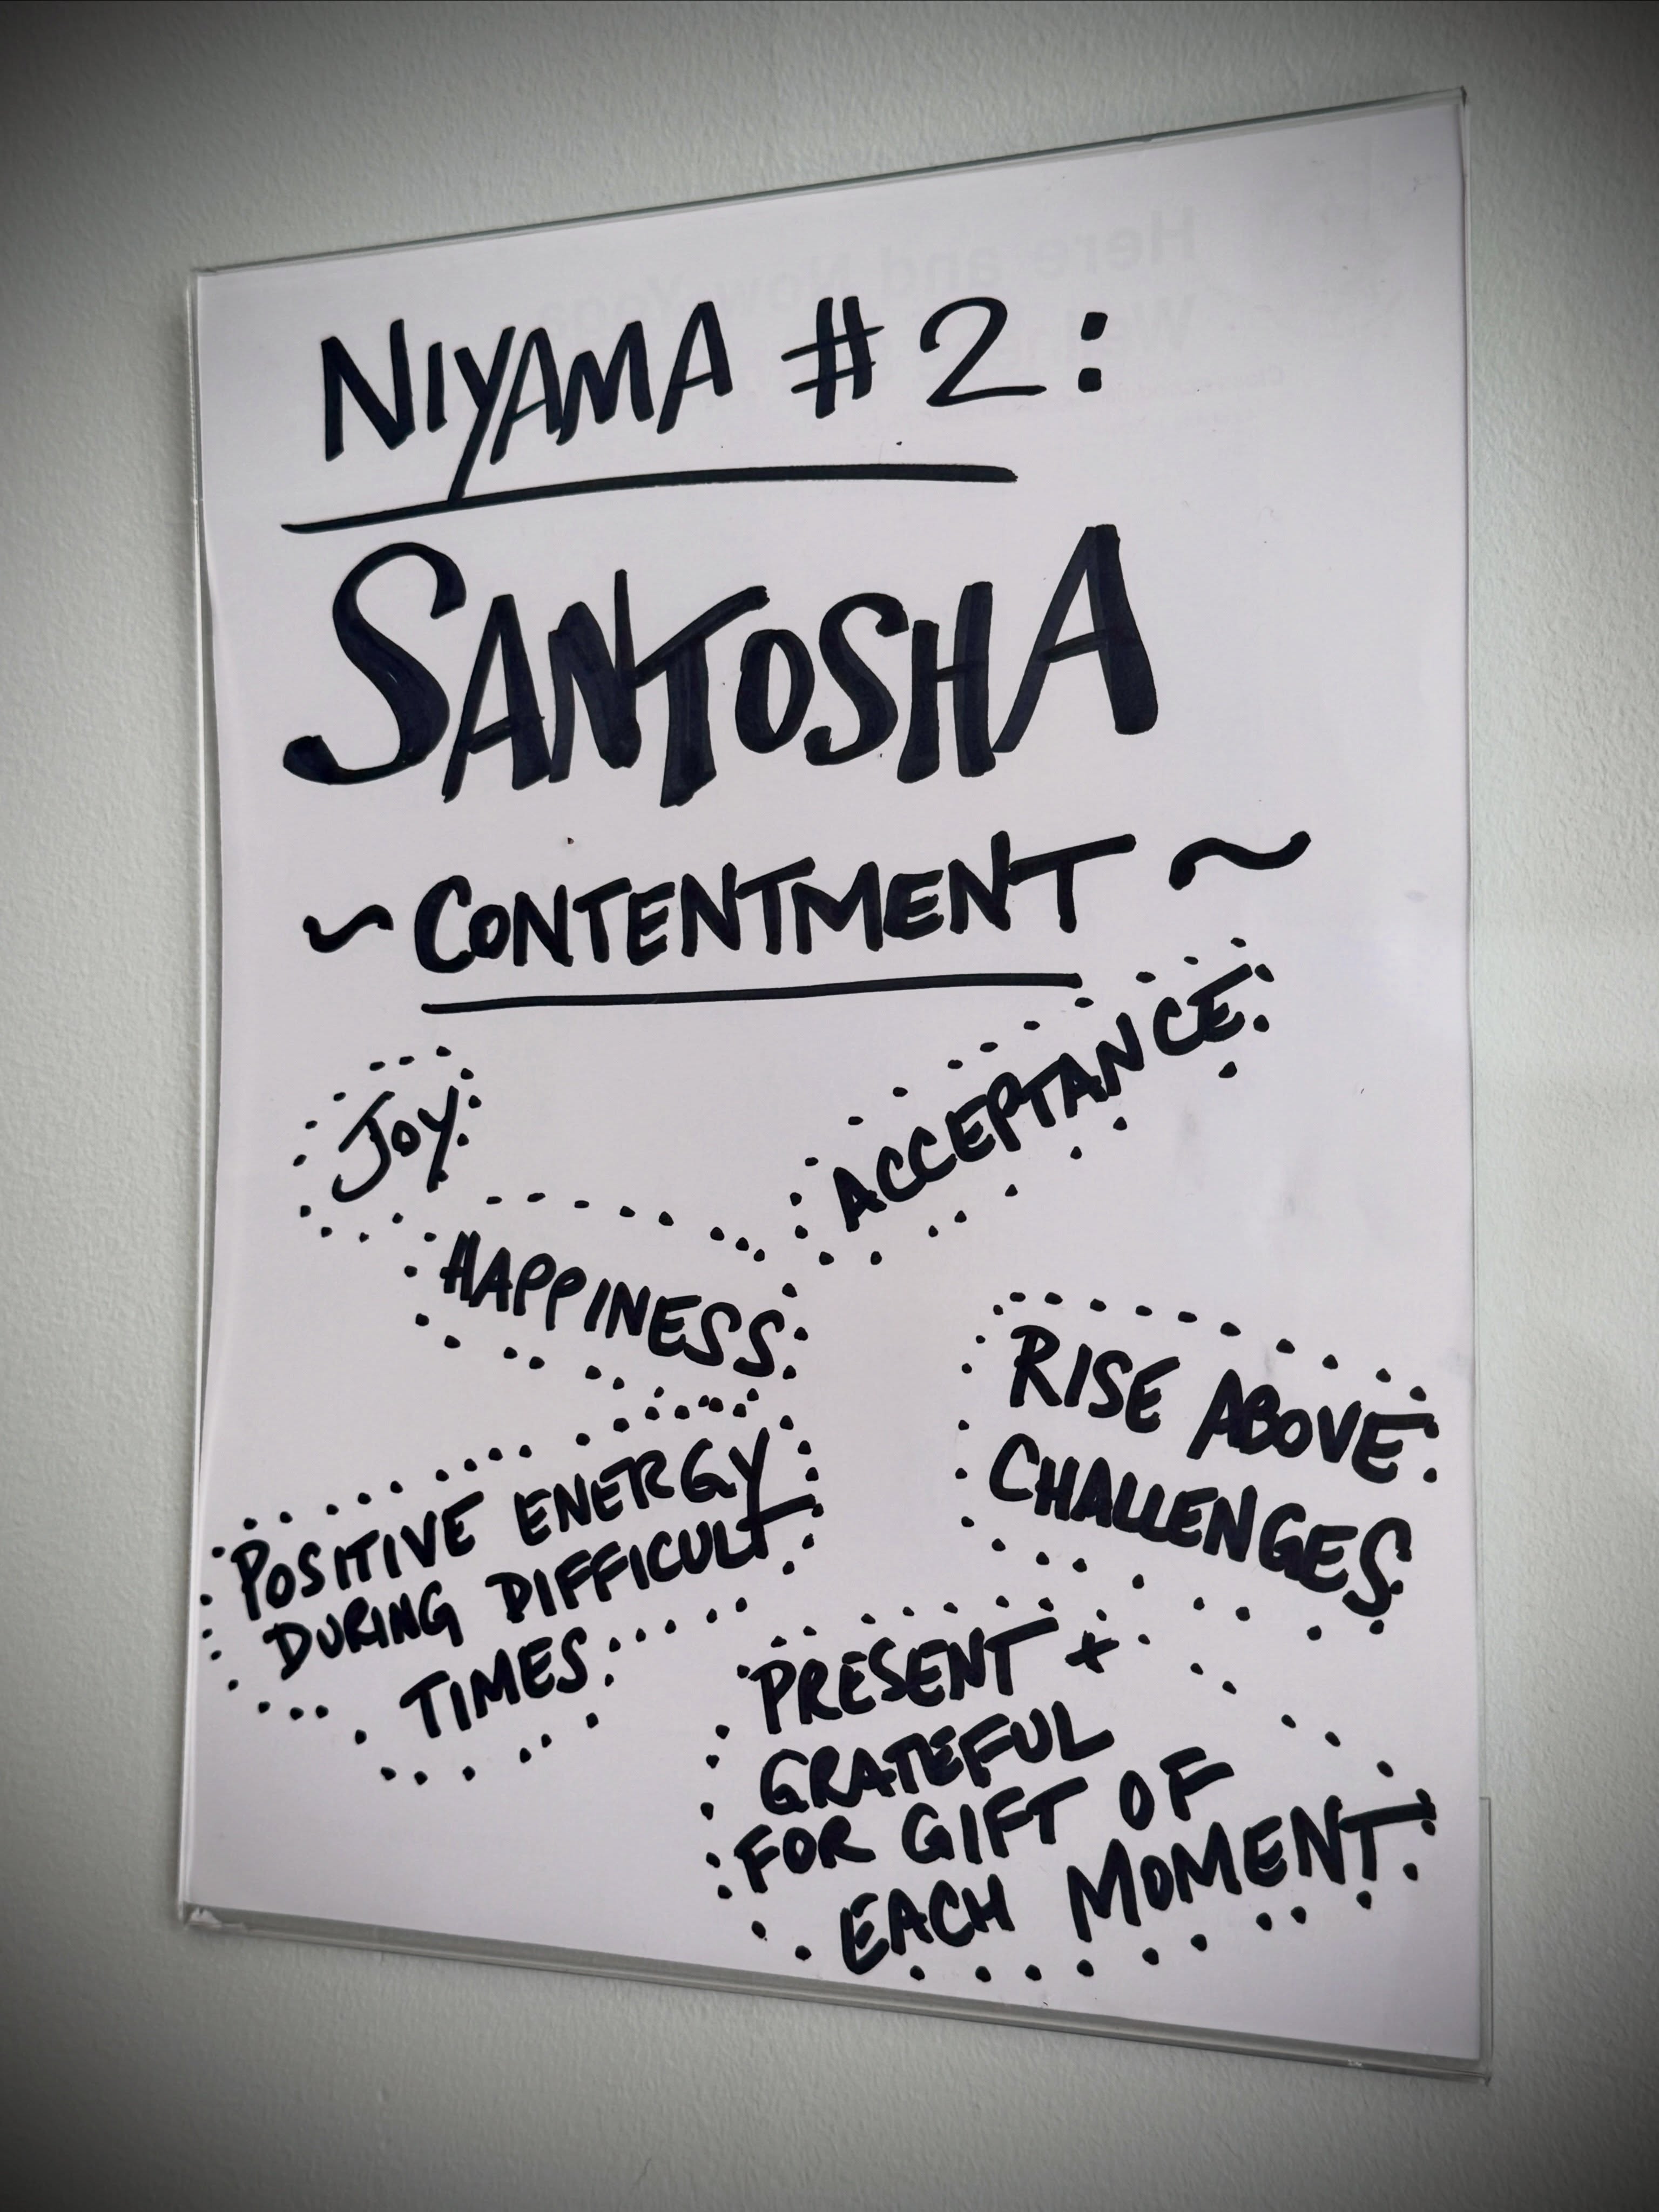 NIYAMA #2:
SANTOSHA
~ CONTENTMENT ~
JOY
ACCEPTANCE
HAPPINESS
RISE ABOVE
CHALLENGES
POSITIVE ENERGY
DURING DIFFICULT
TIMES
PRESENT +
GRATEFUL
FOR GIFT OF
EACH MOMENT
Here and Now Yoga